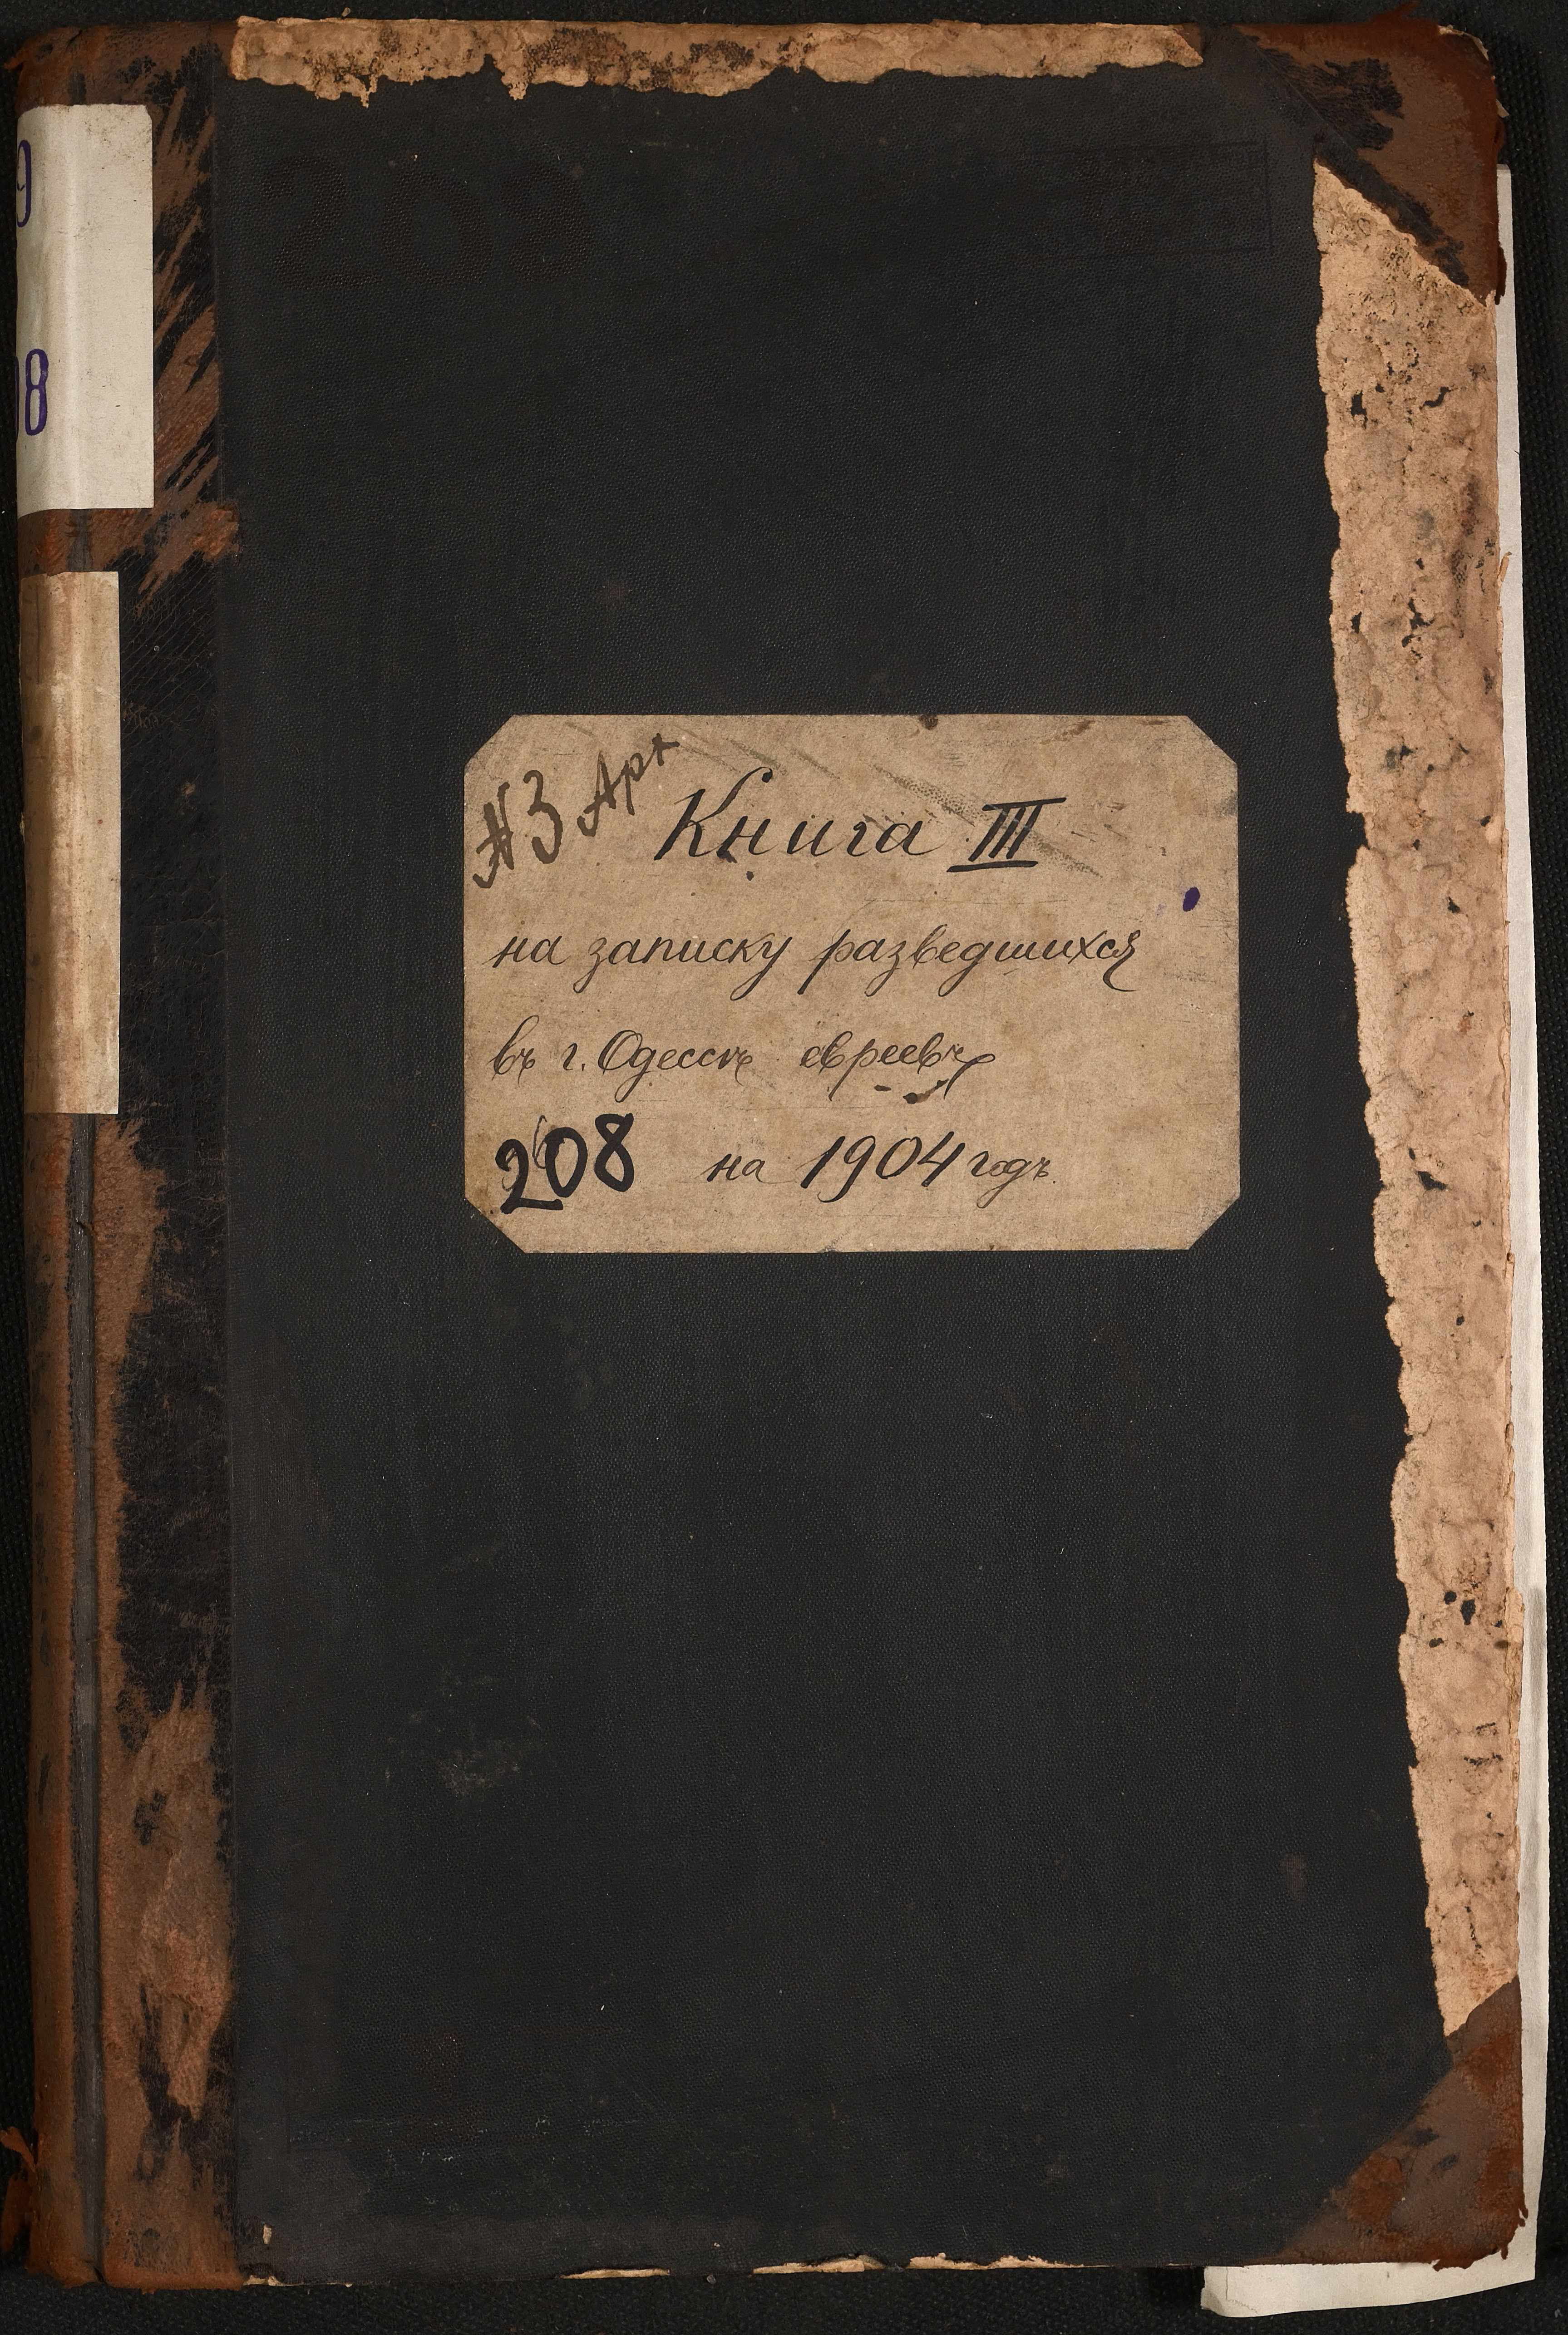 9
08
№3 Арх
Книга III
на записку разведшихся
въ г. Одессѣ евреевъ
208 на 1904 годъ